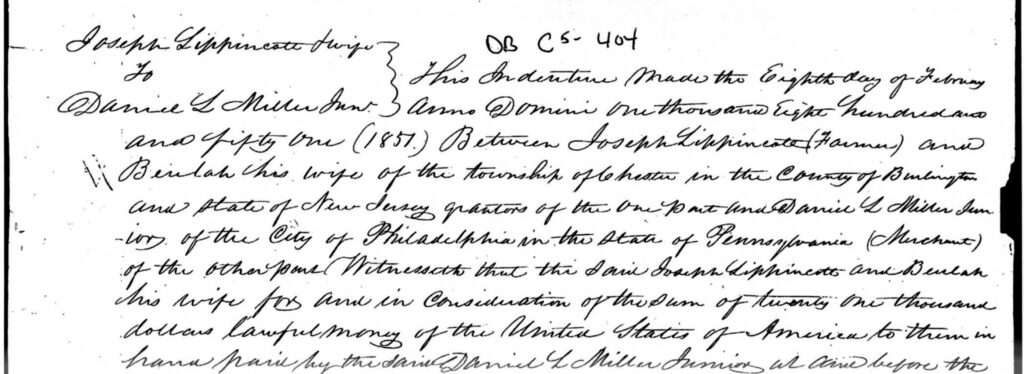 DB C5-404
Joseph Lippincott & wife
To
Daniel L Miller Junr
This Indenture Made the Eighth day of February
Anno Domini One thousand Eight hundred and
and fifty One (1851.) Between Joseph Lippincott (Farmer) and
Beulah his wife of the township of Chester in the County of Burlington
and State of New Jersey grantors of the One Part and Daniel L Miller Jun
-ior. of the City of Philadelphia in the State of Pennsylvania (Merchant)
of the Other part Witnesseth that the said Joseph Lippincott and Beulah
his wife for and in Consideration of the Sum of twenty One thousand
dollars lawful money of the United States of America to them in
hand paid by the said Daniel L Miller Junior at and before the